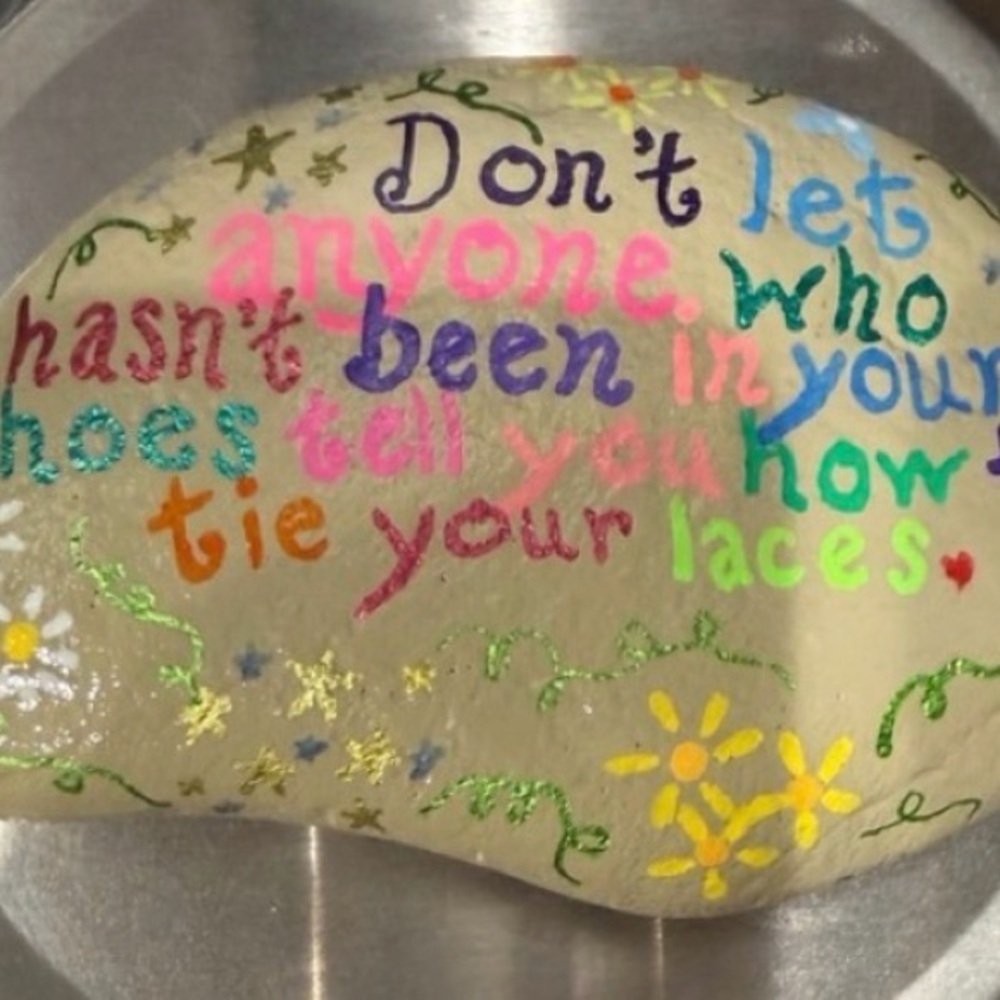 Don't let
anyone who
hasn't been in your
hoes tell you how
tie your laces.